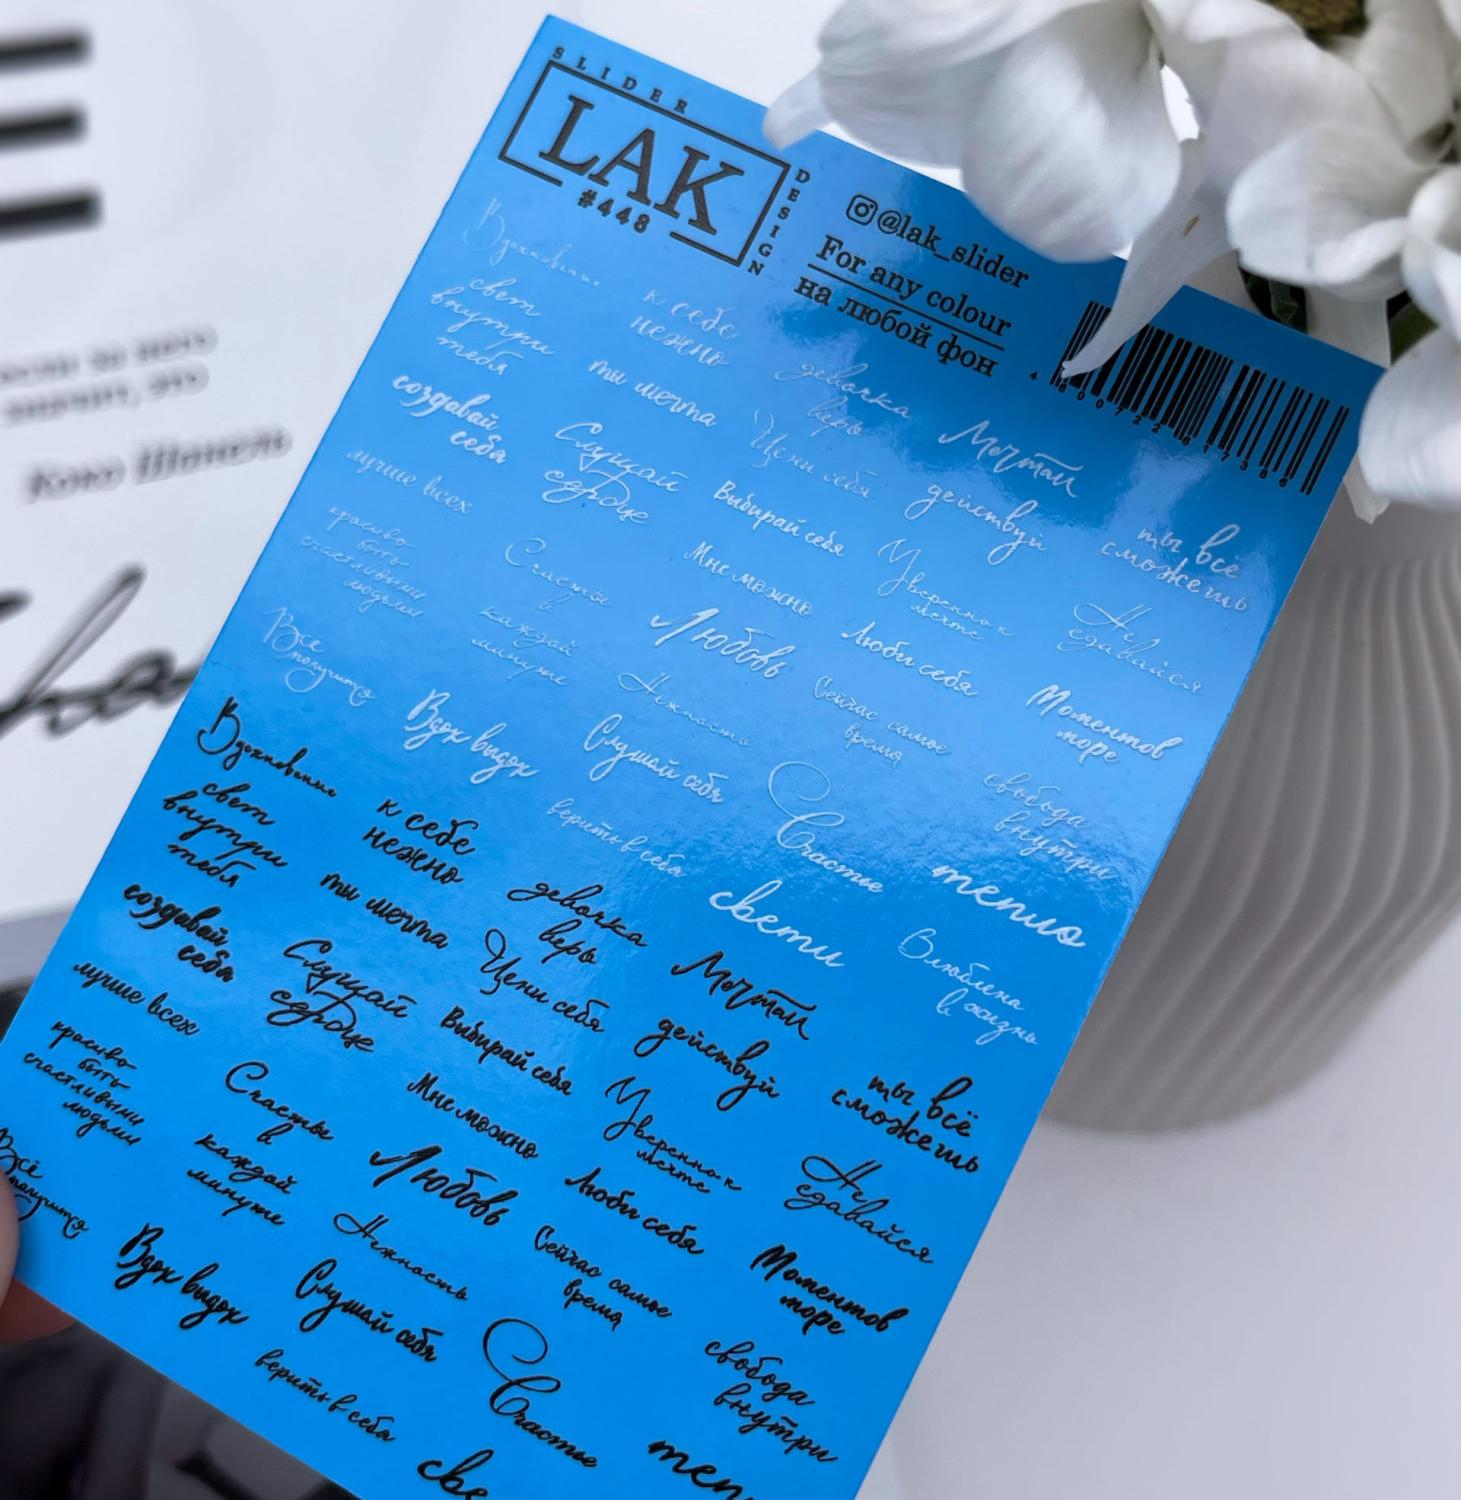 SLIDER
LAK
#448
DESIGN
@lak_slider
For any colour
на любой фон
Вдохновение
свет
внутри
тебя
к себе
нежно
девочка
верь
Мечтай
создавай
себя
ты мечта
Цени себя
действуй
ты всё
сможешь
лучше всех
Слушай
сердце
Выбирай себя
Уверенно к
мечте
Не
сдавайся
красиво
быть
счастливыми
людьми
Счастье
в
каждой
минуте
Мне можно
Люби себя
Моментов
море
Всё
получится
Любовь
Сейчас самое
время
свобода
внутри
Вдох выдох
Нежность
Слушай себя
Счастье
тепло
верить в себя
свети
Влюблена
в жизнь
Вдохновение
свет
внутри
тебя
к себе
нежно
девочка
верь
Мечтай
создавай
себя
ты мечта
Цени себя
действуй
ты всё
сможешь
лучше всех
Слушай
сердце
Выбирай себя
Уверенно к
мечте
Не
сдавайся
красиво
быть
счастливыми
людьми
Счастье
в
каждой
минуте
Мне можно
Люби себя
Моментов
море
Всё
получится
Любовь
Сейчас самое
время
свобода
внутри
Вдох выдох
Нежность
Слушай себя
Счастье
теп
верить в себя
све
Коко Шанель
значит, это